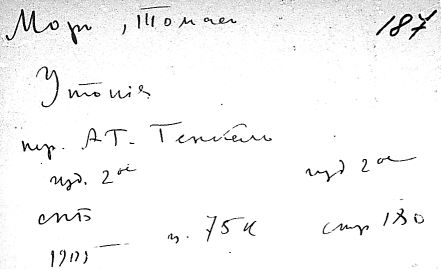 Моръ, Томасъ 187
Утопія
пер. А Г. Генкель
изд. 2ое изд 2ое
СПБ
1905 ц. 75 к стр 180